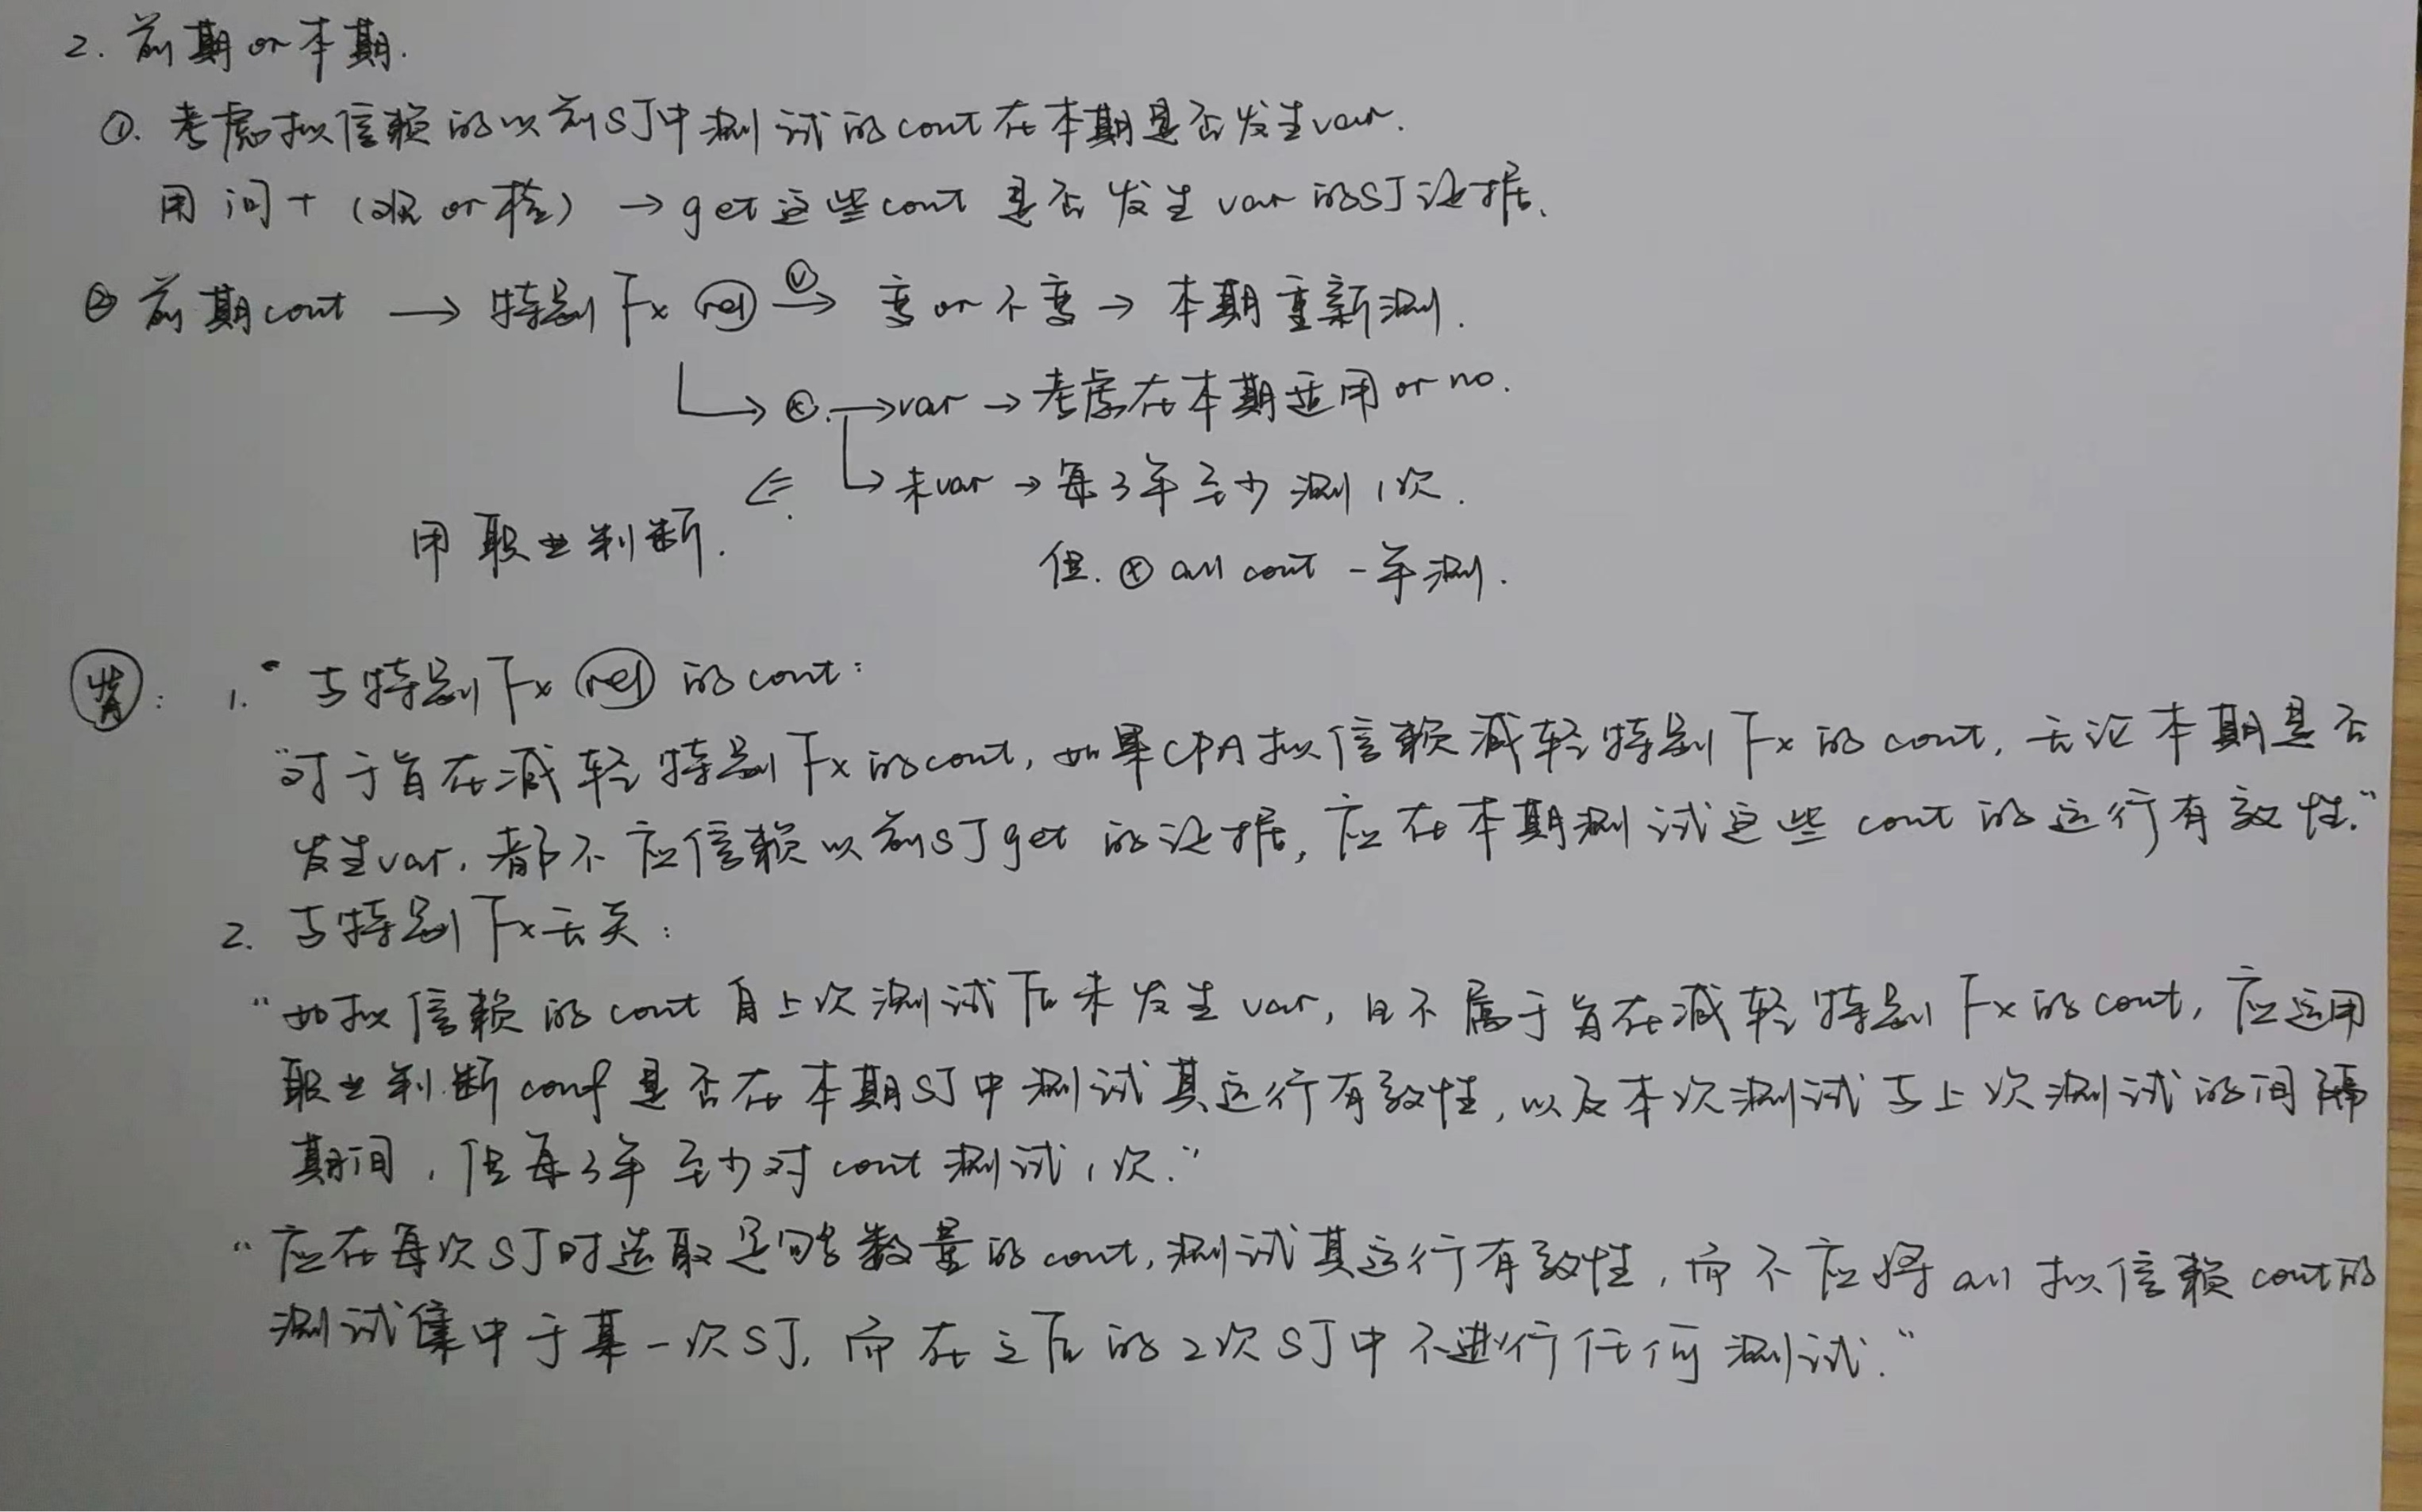 2. 前期 or 本期.
①. 考虑拟信赖的以前SJ中测试的cont在本期是否发生var.
用 问 + (观 or 检) → get 这些cont 是否 发生 var 的SJ证据.
② 前期cont → 特别Fx rel √→ 变 or 不变 → 本期重新测.
└→ ⊗. → var → 考虑在本期适用 or no.
⇐ └→ 未var → 每3年至少测1次.
用职业判断.
但. ⊗ all cont 一年测.
背: 1. 与特别Fx rel 的cont:
"对于旨在减轻特别Fx的cont, 如果CPA拟信赖减轻特别Fx的cont, 无论本期是否
发生var, 都不应信赖以前SJ get 的证据, 应在本期测试这些cont的运行有效性."
2. 与特别Fx无关:
"如拟信赖的cont自上次测试后未发生var, 且不属于旨在减轻特别Fx的cont, 应运用
职业判断conf是否在本期SJ中测试其运行有效性, 以及本次测试与上次测试的间隔
期间, 但每3年至少对cont测试1次."
"应在每次SJ时选取足够数量的cont, 测试其运行有效性, 而不应将all拟信赖cont的
测试集中于某一次SJ, 而在之后的2次SJ中不进行任何测试."